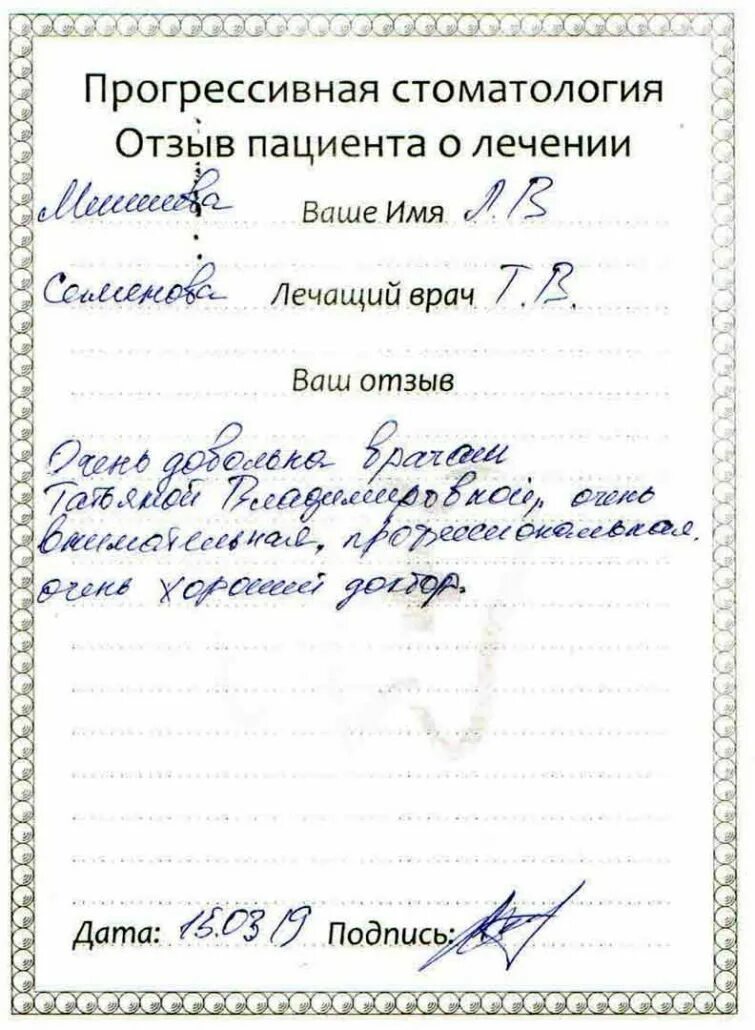 Прогрессивная стоматология
Отзыв пациента о лечении
Ваше Имя Л. В
Семенова Лечащий врач Т. В.
Ваш отзыв
Очень довольна врачом
Татьяной Владимировной, очень
внимательная, профессиональная,
очень хороший доктор.
Дата: 15.03.19 Подпись: